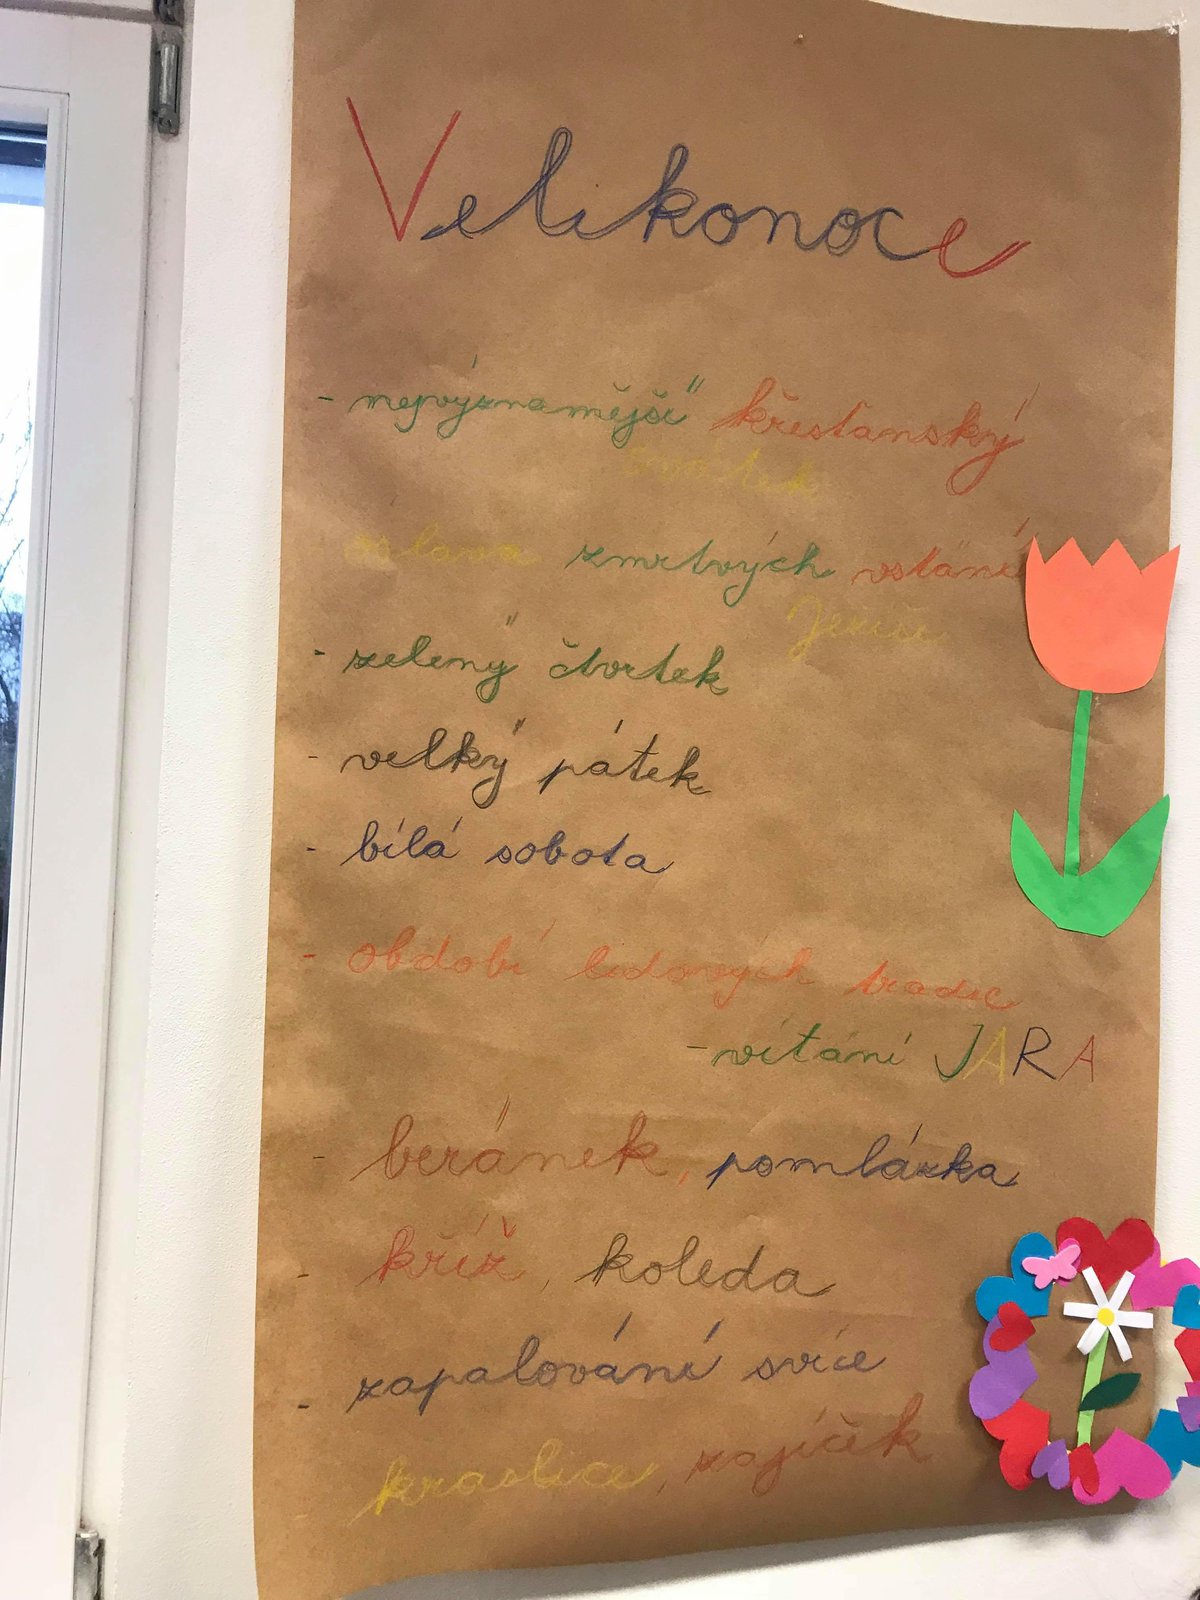 Velikonoce
- nejvýznamější křesťanský
svátek
oslava zmrtvých vstání
Ježíše
- zelený čtvrtek
- velký pátek
- bílá sobota
- období lidových tradic
- vítání JARA
- beránek, pomlázka
- kříž, koleda
- zapalování svíce
- kraslice, zajíček